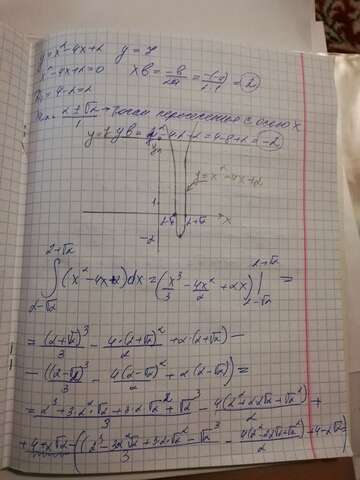 y=x²-4x+2   y=7
x²-4x+2=0   xв = -в/2a = -(-4)/2·1 = 2
= 4-2=2
2±√2/1 - Точки пересечения с осью x
y=7   yв = 2²-4·2+2=4-8+2=-2
y=x²-4x+2
1
2-√2   2+√2   x
-2
∫ 2-√2 2+√2 (x²-4x+2)dx = (x³/3 - 4x²/2 + 2x) | 2-√2 2+√2 =
= (2+√2)³/3 - 4·(2+√2)²/2 + 2·(2+√2) -
- ((2-√2)³/3 - 4(2-√2)²/2 + 2(2-√2)) =
= 2³+3·2²·√2+3·2·√2²+√2³/3 - 4(2²+2·2√2+√2²)/2 +
+ 4+2√2 - (2³-3·2²√2+3·2·√2²-√2³/3 - 4(2²-2·2√2+√2²)/2 + 4-2√2)